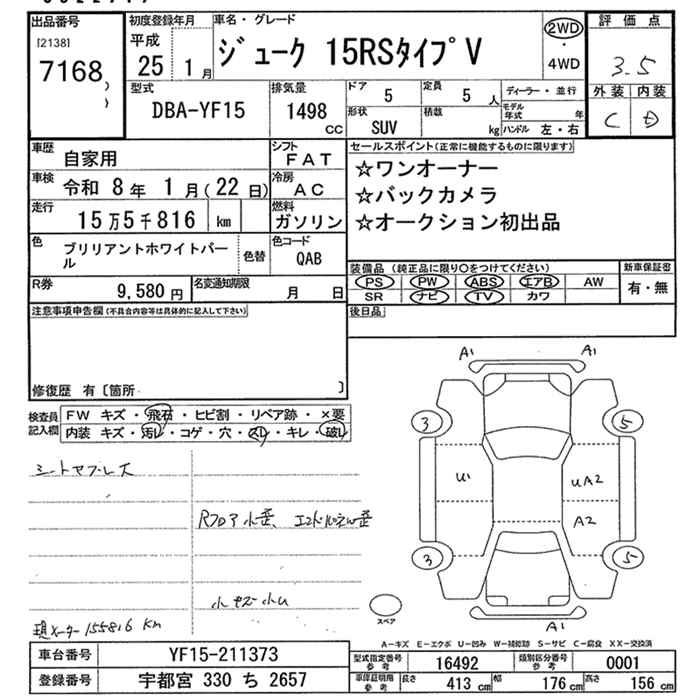 出品番号
[2138]
7168
初度登録年月
平成
25 1 月
車名・グレード
ジューク 15RSタイプV
2WD
・
4WD
評価点
3.5
外装 内装
C D
型式
DBA-YF15
排気量
1498
CC
ドア
5
定員
5 人
形状
SUV
積載
kg
ディーラー・並行
モデル年式 年
ハンドル 左・右
車歴
自家用
シフト
FAT
車検
令和 8 年 1 月(22 日)
冷房
AC
走行
15万5千816 km
燃料
ガソリン
色
ブリリアントホワイトパール
色替
色コード
QAB
R券
9,580 円
名変通知期限
月 日
セールスポイント(正常に機能するものに限ります)
☆ワンオーナー
☆バックカメラ
☆オークション初出品
装備品(純正品に限り○をつけてください)
PS PW ABS エアB AW
SR ナビ TV カワ
新車保証書
有・無
後日品
注意事項申告欄(不具合内容等は具体的に記入して下さい)
修復歴 有〔箇所 〕
検査員記入欄
FW キズ・飛石・ヒビ割・リペア跡・×要
内装 キズ・汚レ・コゲ・穴・スレ・キレ・破レ
現メーター155816 Km
A1 A1
3 5
U1 UA2
A2
3 5
A1
スペア
A-キズ E-エクボ U-凹み W-補修跡 S-サビ C-腐食 XX-交換済
車台番号
YF15-211373
登録番号
宇都宮 330 ち 2657
型式指定番号
参考
16492
類別区分番号
参考
0001
車庫証明用
参考
長さ
413 cm
幅
176 cm
高さ
156 cm